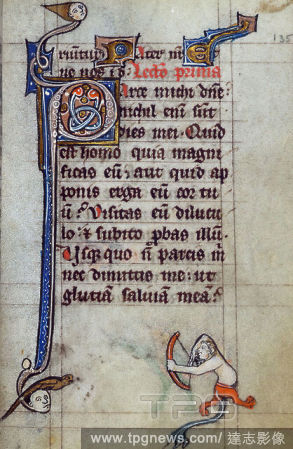 135
runtur Pater nr̄ Et
ne nos is: Lectō prima
Parce michi dn̄e:
nichil enī sūt
dies mei. Quid
est homo quia magni
ficas eū: aut quid ap
ponis erga eū cor tu
ū: Visitas eū dilucu
lo: & subito ꝓbas illū.
Usq̄quo nō parcis mi
nec dimittis me: ut
glutiā saliuā meā:
TPG
www.tpgnews.com / 達志影像